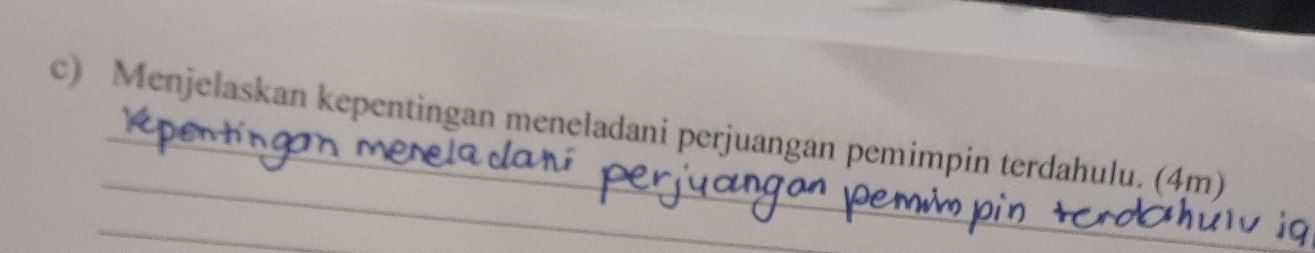 c) Menjelaskan kepentingan meneladani perjuangan pemimpin terdahulu. (4m)
Kepentingan meneladani perjuangan pemimpin terdahulu ia